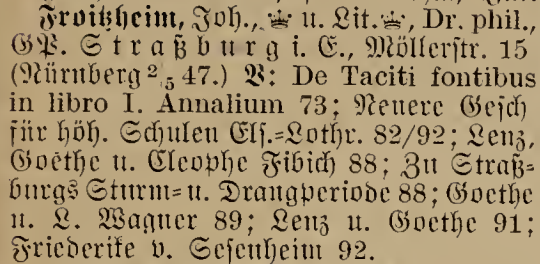 Froitzheim, Joh., ♕ u. Lit.♕, Dr. phil.,
GP. Straßburg i. E., Möllerstr. 15
(Nürnberg 2/5 47.) V: De Taciti fontibus
in libro I. Annalium 73; Neuere Gesch
für höh. Schulen Els.=Lothr. 82/92; Lenz,
Goethe u. Cleophe Fibich 88; Zu Straß=
burgs Sturm= u. Drangperiode 88; Goethe
u. L. Wagner 89; Lenz u. Goethe 91;
Friederike v. Sesenheim 92.